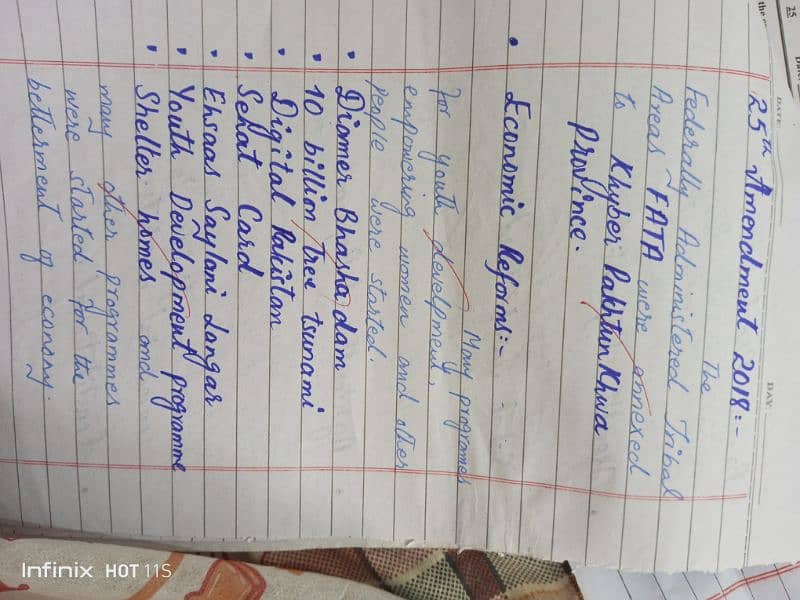 25
the
DATE:
DAY:
25th Amendment 2018:-
The
Federally Administered Tribal
Areas FATA were annexed
to Khyber Pakhtun Khwa
Province.
• Economic Reforms:-
Many programes
for youth develpment,
empowering women and other
people were started.
• Diamer Bhasha dam
• 10 billion tree tsunami
• Digital Pakistan
• Sehat Card
• Ehsaas Saylani Langar
• Youth Development programme
• Shelter homes and
many other programmes
were started for the
betterment of economy.
Infinix HOT 11S